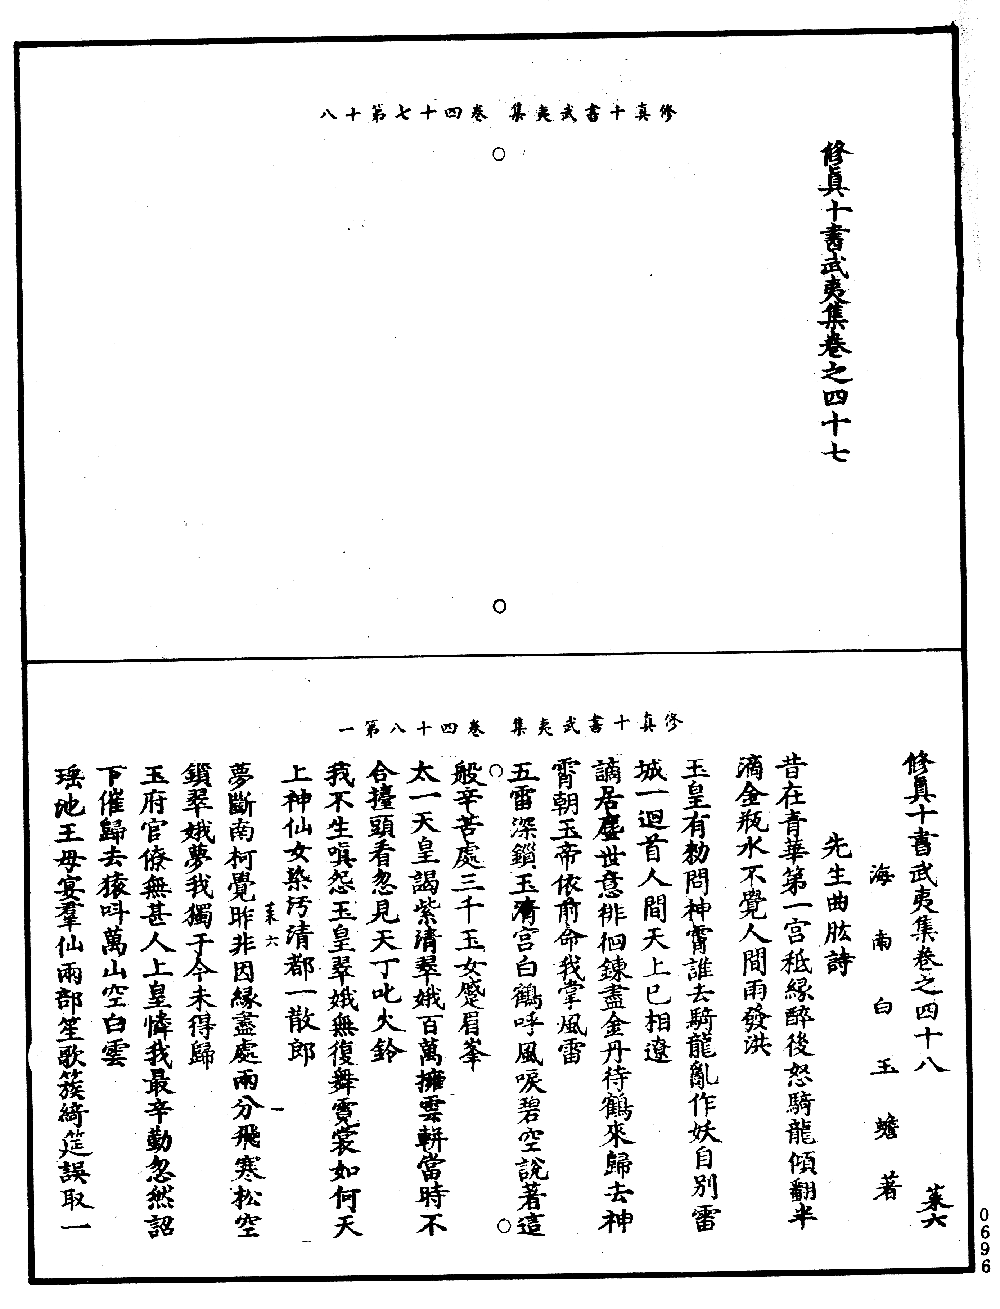 修真十書武夷集 卷四十七第十八
修真十書武夷集卷之四十七
修真十書武夷集 卷四十八第一
修真十書武夷集卷之四十八 菓六
海南白玉蟾著
先生曲肱詩
昔在青華第一宮秪緣醉後怒騎龍傾翻半
滴金瓶水不覺人間雨發洪
玉皇有勑問神霄誰去騎龍亂作妖自別雷
城一迴首人間天上已相遼
謫居塵世意徘徊鍊盡金丹待鶴來歸去神
霄朝玉帝依前命我掌風雷
五雷深鎖玉清宮白鶴呼風唳碧空說著這
般辛苦處三千玉女蹙眉峯
太一天皇謁紫清翠娥百萬擁雲軿當時不
合擡頭看忽見天丁叱火鈴
我不生嗔怨玉皇翠娥無復舞霓裳如何天
上神仙女染污清都一散郎
菓六 一
夢斷南柯覺昨非因緣盡處兩分飛寒松空
鎖翠娥夢我獨于今未得歸
玉府官僚無甚人上皇憐我最辛勤忽然詔
下催歸去猿叫萬山空白雲
瑤池王母宴羣仙兩部笙歌簇綺筵誤取一
0696